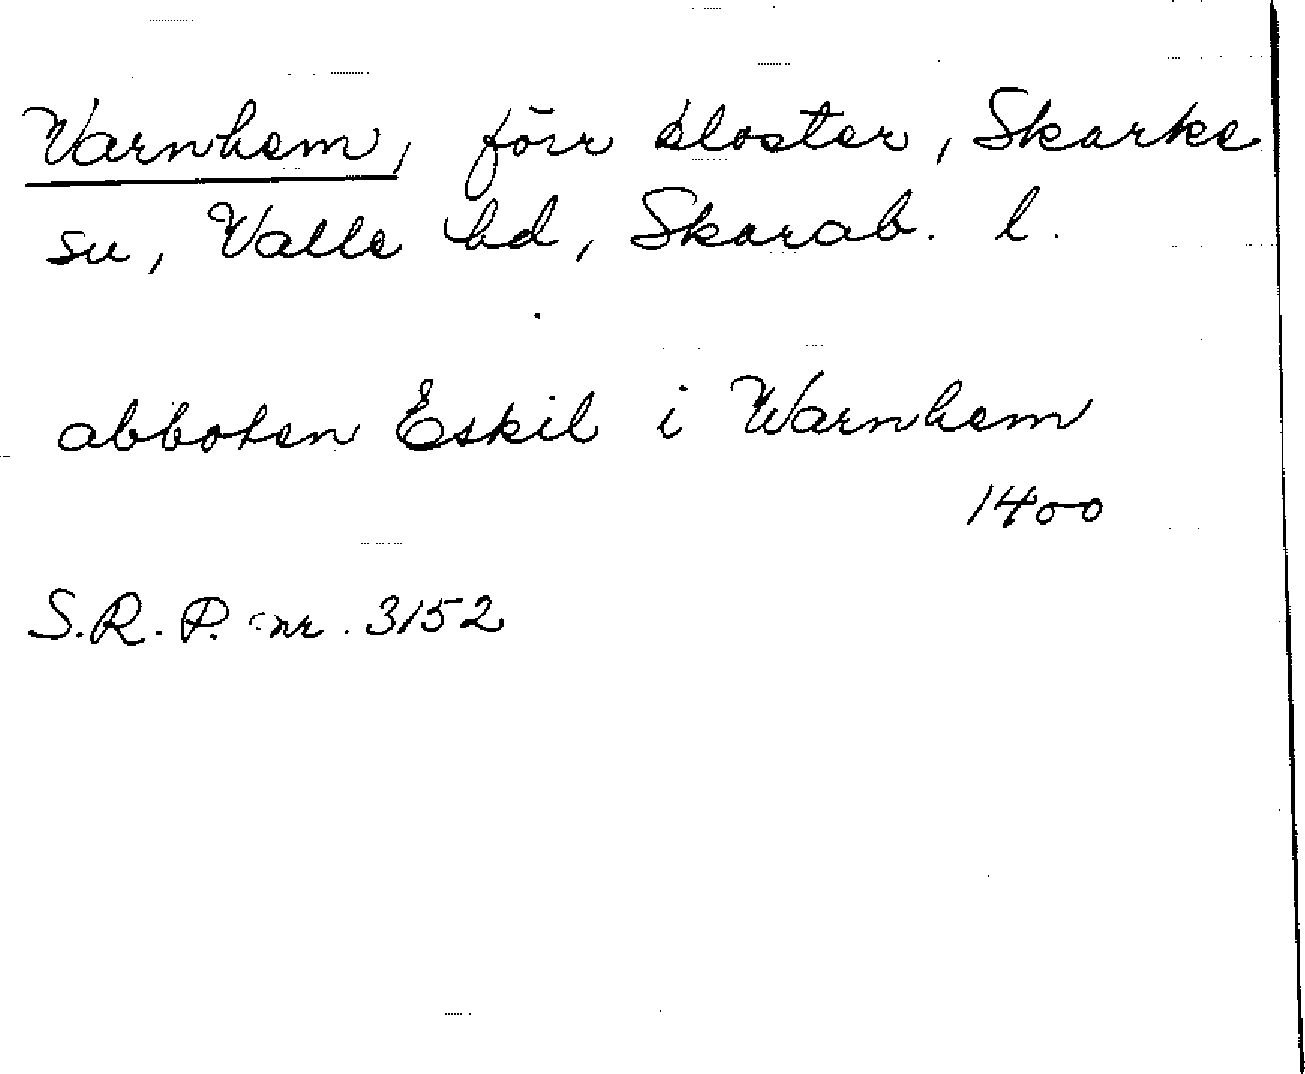 Varnhem, förr kloster, Skarke
sn, Valle hd, Skarab. l.
abboten Eskil i Warnhem
1400
S.R.P. nr. 3152